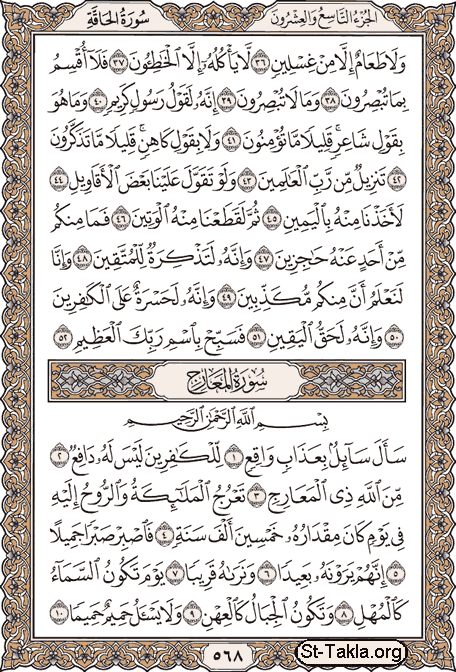 الجزء التاسع والعشرون
سورة الحاقة
وَلَا طَعَامٌ إِلَّا مِنْ غِسْلِينٍ ٣٦ لَّا يَأْكُلُهُۥٓ إِلَّا ٱلْخَٰطِـُٔونَ ٣٧ فَلَآ أُقْسِمُ
بِمَا تُبْصِرُونَ ٣٨ وَمَا لَا تُبْصِرُونَ ٣٩ إِنَّهُۥ لَقَوْلُ رَسُولٍ كَرِيمٍ ٤٠ وَمَا هُوَ
بِقَوْلِ شَاعِرٍ ۚ قَلِيلًا مَّا تُؤْمِنُونَ ٤١ وَلَا بِقَوْلِ كَاهِنٍ ۚ قَلِيلًا مَّا تَذَكَّرُونَ
٤٢ تَنزِيلٌ مِّن رَّبِّ ٱلْعَٰلَمِينَ ٤٣ وَلَوْ تَقَوَّلَ عَلَيْنَا بَعْضَ ٱلْأَقَاوِيلِ ٤٤
لَأَخَذْنَا مِنْهُ بِٱلْيَمِينِ ٤٥ ثُمَّ لَقَطَعْنَا مِنْهُ ٱلْوَتِينَ ٤٦ فَمَا مِنكُم
مِّنْ أَحَدٍ عَنْهُ حَٰجِزِينَ ٤٧ وَإِنَّهُۥ لَتَذْكِرَةٌ لِّلْمُتَّقِينَ ٤٨ وَإِنَّا
لَنَعْلَمُ أَنَّ مِنكُم مُّكَذِّبِينَ ٤٩ وَإِنَّهُۥ لَحَسْرَةٌ عَلَى ٱلْكَٰفِرِينَ
٥٠ وَإِنَّهُۥ لَحَقُّ ٱلْيَقِينِ ٥١ فَسَبِّحْ بِٱسْمِ رَبِّكَ ٱلْعَظِيمِ ٥٢
سورة المعارج
بِسْمِ ٱللَّهِ ٱلرَّحْمَٰنِ ٱلرَّحِيمِ
سَأَلَ سَآئِلٌۢ بِعَذَابٍ وَاقِعٍ ١ لِّلْكَٰفِرِينَ لَيْسَ لَهُۥ دَافِعٌ ٢
مِّنَ ٱللَّهِ ذِى ٱلْمَعَارِجِ ٣ تَعْرُجُ ٱلْمَلَٰٓئِكَةُ وَٱلرُّوحُ إِلَيْهِ
فِى يَوْمٍ كَانَ مِقْدَارُهُۥ خَمْسِينَ أَلْفَ سَنَةٍ ٤ فَٱصْبِرْ صَبْرًا جَمِيلًا
٥ إِنَّهُمْ يَرَوْنَهُۥ بَعِيدًا ٦ وَنَرَىٰهُ قَرِيبًا ٧ يَوْمَ تَكُونُ ٱلسَّمَآءُ
كَٱلْمُهْلِ ٨ وَتَكُونُ ٱلْجِبَالُ كَٱلْعِهْنِ ٩ وَلَا يَسْـَٔلُ حَمِيمٌ حَمِيمًا ١٠
٥٦٨
St-Takla.org